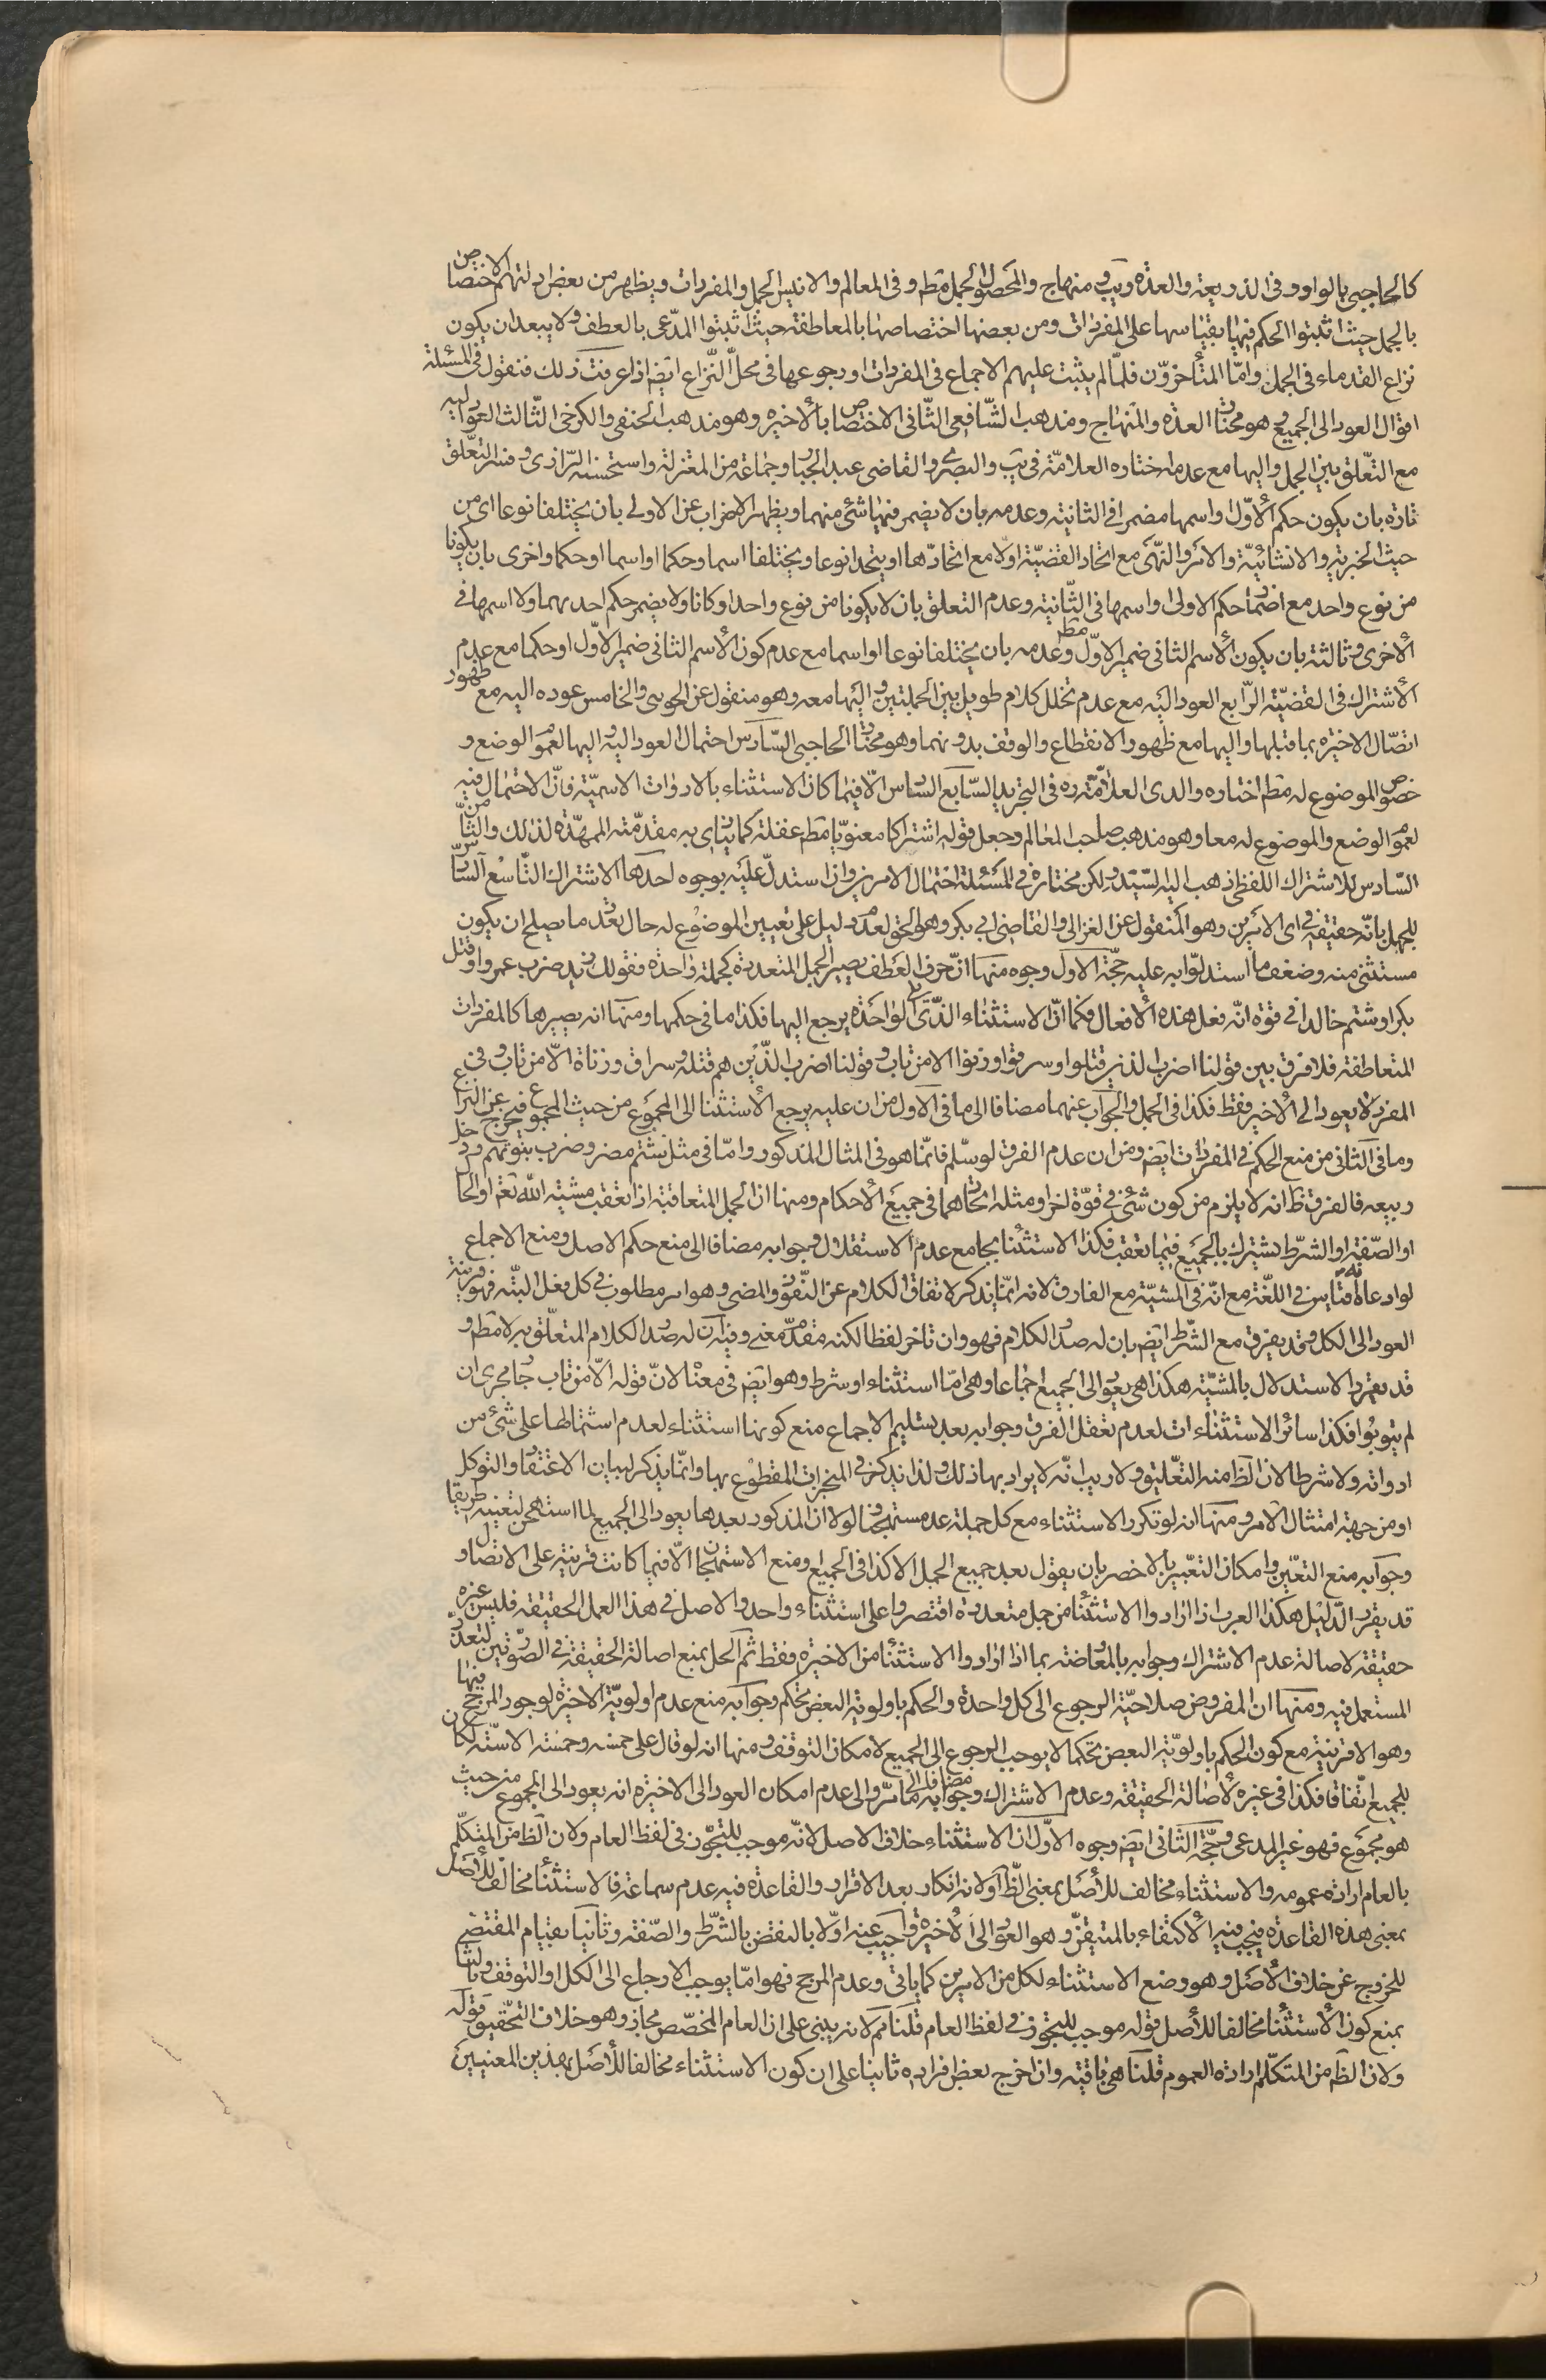 كالحاجبى بالواو وفى الذريعة والعدة ويب وفى منهاج والمحصول الجمل مطم وفى المعالم والانيس الجمل والمفردات ويظهر من بعض ادلتهم الاختصاص
بالجمل حيث اثبتوا الحكم فيها بقياسها على المفردات ومن بعضها اختصاصها بالمعاطفة حيث اثبتوا المدّعى بالعطف ولا يبعد ان يكون
نزاع القدماء فى الجمل وامّا المتأخرّون فلمّا لم يثبت عليهم الاجماع فى المفردات او رجوعها فى محلّ النّزاع ايضم اذا عرفت ذلك فنقول فى المسئلة
اقوال العود الى الجميع وهو مختار العدة والمنهاج ومذهب الشّافعى الثّانى الاختصاص بالأخيرة وهو مذهب الحنفى والكرخى الثّالث العود اليه
مع التعّلق بين الجمل واليها مع عدمه اختاره العلامّة فى يب والبصرى والقاضى عبد الجبار وجماعة من المعتزلة واستحسنه الرّازى وفسر التعّلق
تارة بان يكون حكم الأوّل واسمها مضمرا فى الثانية وعدمه بان لا يضمر فيها شئ منهما ويظهر الاضراب عن الاولى بان يختلفا نوعا اى من
حيث الخبرية والانشائيّة والامر والنّهى مع اتحاد القضيّة اولا مع اتحادّها او يتحدا نوعا ويختلفا اسما وحكما او اسما او حكما واخرى بان يكونا
من نوع واحد مع اضمار حكم الاولى او اسمها فى الثّانية وعدم التعلق بان لا يكونا من نوع واحد او كانا ولا يضمر حكم احديهما ولا اسمها فى
الأخرى وثالثة بان يكون الأسم الثانى ضمير الاوّل مطم وعدمه بان يختلفا نوعا او اسما مع عدم كون الأسم الثانى ضمير الاوّل او حكما مع عدم
الأشتراك فى القضيّة الرّابع العود اليه مع عدم تخلل كلام طويل بين الجملتين واليها معه وهو منقول عن الجوينى والخامس عوده اليه مع ظهور
اتصّال الاخيرة بما قبلها واليها مع ظهور الانقطاع والوقف بدونهما وهو مختار الحاجبى السّادس احتمال العود اليه واليها لعموم الوضع و
خصوص الموضوع له مطم اختاره والدى العلامّة ره فى التجريد السّابع السّادس الّا فيما كان الاستثناء بالادوات الاسميّة فانّ الاحتمال فيه
لعموم الوضع والموضوع له معا وهو مذهب صاحب المعالم وجعل قوله اشتراكا معنويّا مطم غفلة كما ينادى به مقدمّته الممهّدة لذلك والثّامن
السّادس للاشتراك اللفظى ذهب اليه السّيّد ولكن مختاره فى المسئلة احتمال الامرين وان استدلّ عليه بوجوه احدها الاشتراك التّاسع السّادس
للجهل بانّه حقيقة فى اى الامرين وهو المنقول عن الغزالى والقاضى ابى بكر وهو الحق لعدم دليل على تعيين الموضوع له حال تعدّد ما يصلح ان يكون
مستثنى منه وضعف ما استدلّوا به عليه حجّة الاول وجوه منها انّ حرف العطف يصير الجمل المتعددة كجملة واحدة فقولك زيد ضرب عمروا وقتل
بكرا وشتم خالدا فى قوة انّه فعل هذه الأفعال فكما انّ الاستثناء الذّى تلا الواحدة يرجع اليها فكذا ما فى حكمها ومنها انه يصيرها كالمفردات
المتعاطفة فلا فرق بين قولنا اضرب الذين قتلوا وسرقوا وزنوا الا من تاب وقولنا اضرب الذّين هم قتلة وسراق وزناة الّا من تاب وفى
المفرد لا يعود الى الأخير فقط فكذا فى الجمل والجواب عنهما مضافا الى ما فى الاول من ان عليه يرجع الأستثنا الى المجموع من حيث المجموع فيخرج عن النزاع
وما فى الثانى من منع الحكم فى المفردات ايضم ومن ان عدم الفرق لو سلّم فانّما هو فى المثال المذكور وامّا فى مثل شتم مضر وضرب بنو تميم ودخل
ربيعه فالفرق ظ انه لا يلزم من كون شئ فى قوّة اخر او مثله اتحادهما فى جميع الأحكام ومنها ان الجمل المتعاقبة اذا تعقب مشية الله تعم او الحال
او الصّفة او الشرّط تشترك بالجميع فيما تعقبه فكذا الاستثنا بجامع عدم الاستقلال وجوابه مضافا الى منع حكم الاصل ومنع الاجماع
لو ادعاه انه قياس فى اللغّة مع انّه فى المشيّة مع الفارق لانه انّما يذكر لايقاف الكلام عن النّفوذ والمضى وهو امر مطلوب فى كل فعل البتّه فهو قرينة
العود الى الكل وقد يفرق مع الشّرط ايضم بان له صدر الكلام فهو وان تاخر لفظا لكنه مقدمّ معنى وفيه ان له صدر الكلام المتعلّق به لا مطم و
قد يقرر الاستدلال بالمشيّة هكذا هى يعود الى الجميع اجماعا وهى امّا استثناء او شرط وهو ايضم فى معناه لانّ قوله الّا من تاب جار مجرى ان
لم يتوبوا فكذا سائر الاستثناءات لعدم تعقل الفرق وجوابه بعد تسليم الاجماع منع كونها استثناء لعدم اشتمالها على شئ من
ادواته ولا شرطا لان الظ منه التعّليق ولا ريب انّه لا يراد بها ذلك ولذا يذكر فى المنجزات المقطوع بها وانّما يذكر لبيان الاعتقاد والتوكل
او من جهة امتثال الامر ومنها انه لو تكرر الاستثناء مع كل جملة عد مستهجنا فلولا ان المذكور بعدها يعود الى الجميع لما استهجن لتعينه طريقا
وجوابه منع التعّين وامكان التعّبير بالاخصر بان يقول بعد جميع الجمل الا كذا فى الجميع ومنع الاستهجان الّا فيما كانت قرينة على الاتصال و
قد يقرر الدّليل هكذا العرب اذا ارادوا الاستثنا من جمل متعددة اقتصروا على استثناء واحد والاصل فى هذا العمل الحقيقة فليس غيره
حقيقة لاصالة عدم الاشتراك وجوابه بالمعارضة بما اذا ارادوا الاستثنا من الاخيرة فقط ثم الحل بمنع اصالة الحقيقة فى الصّورتين لتعدّد
المستعمل فيه ومنها ان المفروض صلاحيّة الرجوع الى كل واحدة والحكم باولوية البعض تحكم وجوابه منع عدم اولويّة الاخيرة لوجود المرجح فيها
وهو الاقربية مع كون الحكم باولويّة البعض تحكما لا يوجب الرجوع الى الجميع لامكان التوقف ومنها انه لو قال على خمسه وخمسه الا ستّه لكان
للجميع اتّفاقا فكذا فى غيره لأصالة الحقيقة وعدم الاشتراك وجوابه مضافا الى ما مرّ والى عدم امكان العود الى الاخيرة انه يعود الى المجموع من حيث
هو مجموع فهو غير المدعى وحجّة الثانى ايضم وجوه الاوّل ان الاستثناء خلاف الاصل لانّه موجب للتجوّز فى لفظ العام ولان الظ من المتكلّم
بالعام ارادة عمومه والاستثناء مخالف للأصل بمعنى الظّ او لانه انكار بعد الاقرار والقاعدة فيه عدم سماعه فالاستثنأ مخالف للأصل
بمعنى هذه القاعدة فيجب فيه الأكتفاء بالمتيقن وهو العود الى الأخيرة واجيب عنه اوّلا بالنقض بالشّرط والصّفة وثانيا بقيام المقتضى
للخروج عن خلاف الأصل وهو وضع الاستثناء لكل من الامرين كما ياتى وعدم المرجح فهو امّا يوجب الارجاع الى الكل او التوقف وثالثا
بمنع كون الأستثنا مخالفا للأصل قوله موجب للتجوز فى لفظ العام قلنا مم لانه يبنى على ان العام المخصّص مجاز وهو خلاف التّحقيق قوله
ولان الظ من المتكلّم ارادة العموم قلنا هى باقية وان اخرج بعض افراده ثانيا على ان كون الاستثناء مخالفا للأصل بهذين المعنيين